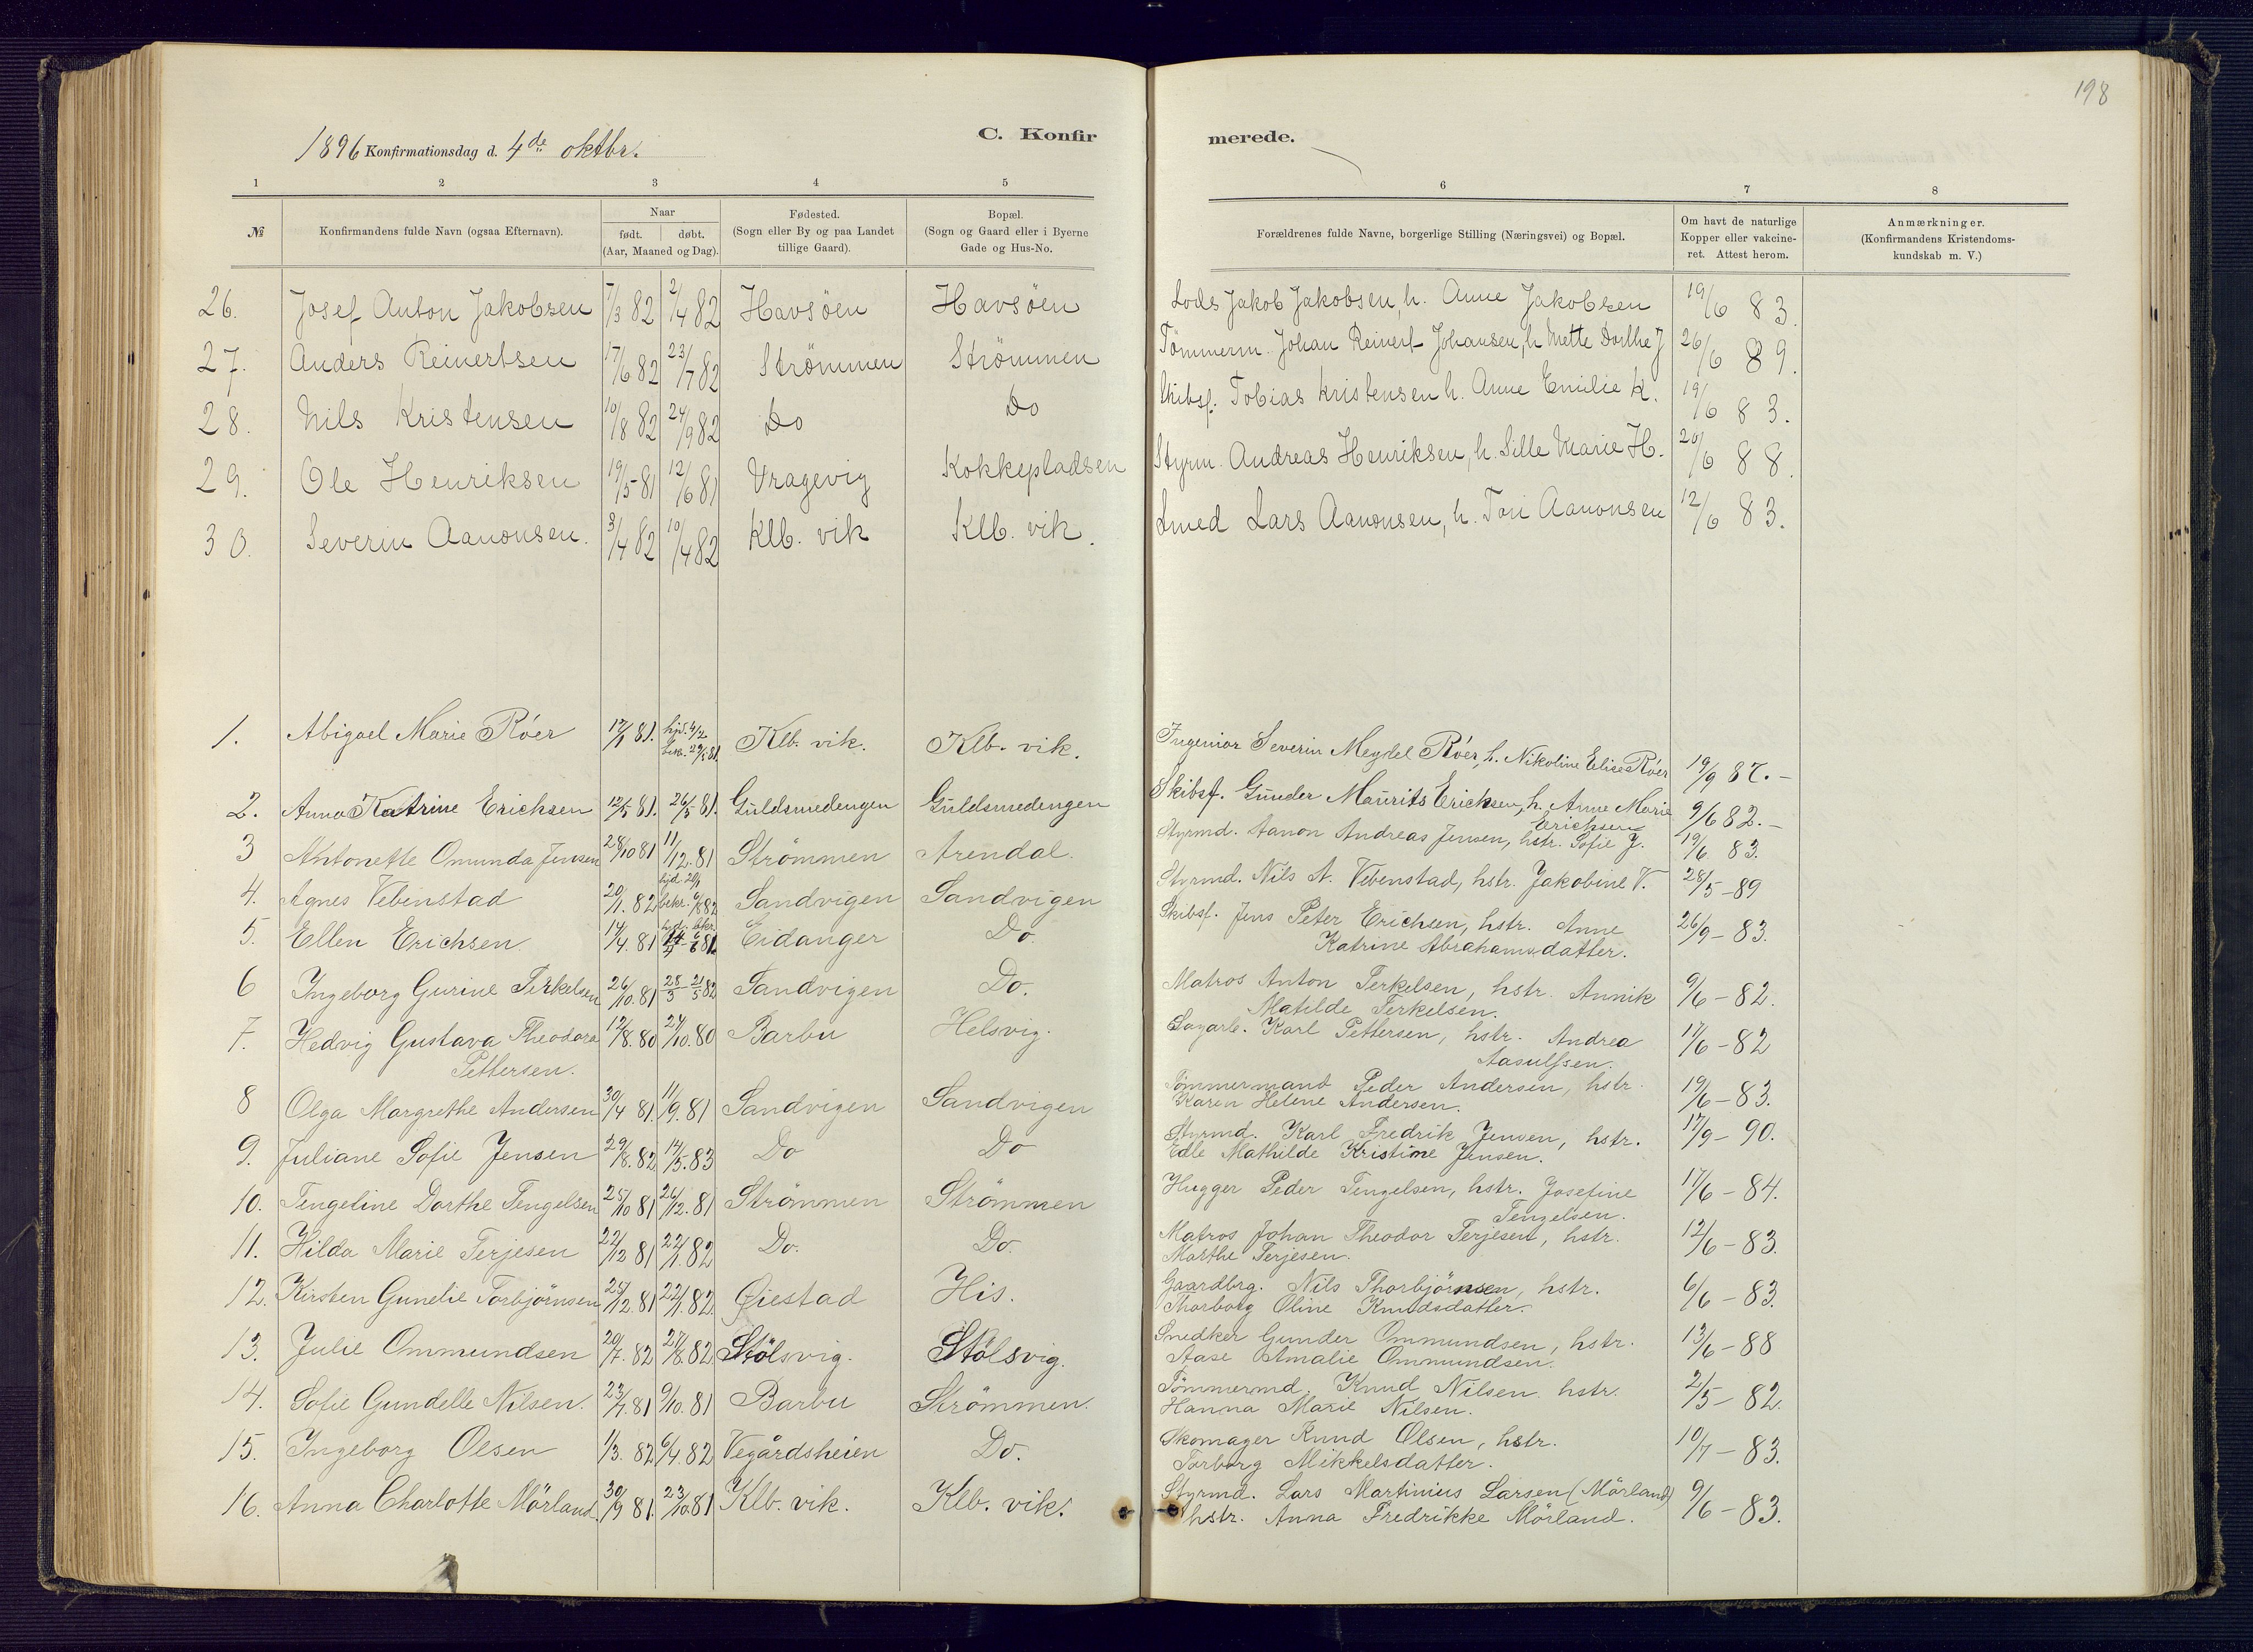 198
1896 Konfirmationsdag d. 4de oktbr.
C. Konfir
merede.
1 2 3 4 5 6 7 8
№ Konfirmandens fulde Navn (ogsaa Efternavn). Naar født. døbt. (Aar, Maaned og Dag). Fødested. (Sogn eller By og paa Landet tillige Gaard). Bopæl. (Sogn og Gaard eller i Byerne Gade og Hus-No. Forældrenes fulde Navne, borgerlige Stilling (Næringsvei) og Bopæl. Om havt de naturlige Kopper eller vakcineret. Attest herom. Anmærkninger. (Konfirmandens Kristendomskundskab m. V.)
26. Josef Anton Jakobsen 7/3 82 2/4 82 Havsöen Havsöen Lods Jakob Jakobsen, h. Anne Jakobsen 19/6 83.
27. Anders Reinertsen 17/6 82 23/7 82 Strömmen Strömmen Tömmerm. Johan Reinert Johansen, h Mette Dorthe J 26/6 89.
28. Nils Kristensen 10/8 82 24/9 82 Do Do Skibsf. Tobias Kristensen h. Anne Emilie K. 19/6 83.
29. Ole Henriksen 19/5 81 12/6 81 Vragevig Kokkepladsen Styrm. Andreas Henriksen, h. Sille Marie H. 20/6 88.
30. Severin Aanonsen. 3/4 82 10/4 82 Klb. vik Klb. vik. Smed Lars Aanonsen, h. Tori Aanonsen 12/6 83.
1. Abigael Marie Röer 17/1 81. hjd. 4/2 bek. 29/5 81. Klb. vik. Klb. vik. Ingeniör Severin Meydel Röer, h. Nikoline Elise Röer 19/9 87.-
2. Anna Katrine Erichsen 12/5 81. 26/5 81. Guldsmedengen Guldsmedengen Skibsf. Gunder Maurits Erichsen, h. Anne Marie Erichsen 9/6 82.-
3 Antonette Omunda Jensen 28/10 81 11/12. 81 Strömmen Arendal. Styrmd. Aanon Andreas Jensen, hstr. Sofie J. 19/6. 83.
4. Agnes Vebenstad 20/1. 82 hjd. 20/1 bekr. 6/8 82 Sandvigen Sandvigen Styrmd. Nils A. Vebenstad, hstr. Jakobine V. 28/5-89
5. Ellen Erichsen 14/4. 81 hjd. bkr. 14/4 6/6 81. Eidanger Do. Skibsf. Jens Peter Erichsen, hstr. Anne
Katrine Abrahamsdatter. 26/9-83.
6 Ingeborg Gurine Terkelsen 26/10. 81 25/3-21/5 82 Sandvigen Do. Matros Anton Terkelsen, hstr. Annik
Matilde Terkelsen. 9/6-82.
7. Hedvig Gustava Theodora
Pettersen. 12/8. 80 24/10. 80 Barbu Helsvig. Sagarb. Karl Pettersen, hstr. Andrea
Aasulfsen. 17/6-82
8 Olga Margrethe Andersen 30/4 81. 11/9. 81 Sandvigen Sandvigen Tömmermand Peder Andersen, hstr.
Karen Helene Andersen. 19/6-83.
9. Juliane Sofie Jensen 29/8. 82 14/5. 83 Do Do Styrmd. Karl Fredrik Jensen, hstr.
Edle Mathilde Kristine Jensen. 17/9-90.
10. Tengeline Dorthe Tengelsen 25/10 81 26/12. 81 Strömmen Strömmen Hugger Peder Tengelsen, hstr. Josefine
Tengelsen. 17/6-84.
11. Hilda Marie Terjesen 22/12 81 22/1. 82 Do. Do. Matros Johan Theodor Terjesen, hstr.
Marthe Terjesen. 12/6-83.
12. Kirsten Gunelie Torbjörnsen 25/12. 81 22/1. 82 Øiestad His. Gaardbrg. Nils Thorbjörnsen, hstr.
Thorborg Oline Knudsdatter. 6/6-83.
13. Julie Ommundsen 20/7. 82 27/8. 82 Stölsvig. Stölsvig. Snedker Gunder Ommundsen, hstr.
Aase Amalie Ommundsen. 13/6-88
14. Sofie Gundelle Nilsen. 23/7. 81 9/10. 81 Barbu Strömmen. Tömmermd. Knud Nilsen hstr.
Hanna Marie Nilsen. 2/5-82.
15. Ingeborg Olsen 1/3. 82 6/4. 82 Vegårdsheien Do. Skomager Knud Olsen, hstr.
Torborg Mikkelsdatter. 10/7-83.
16. Anna Charlotte Mörland. 30/9 81. 23/10. 81 Klb. vik. Klb. vik. Styrmd. Lars Martinius Larsen (Mörland)
hstr. Anna Fredrikke Mörland. 9/6-83.